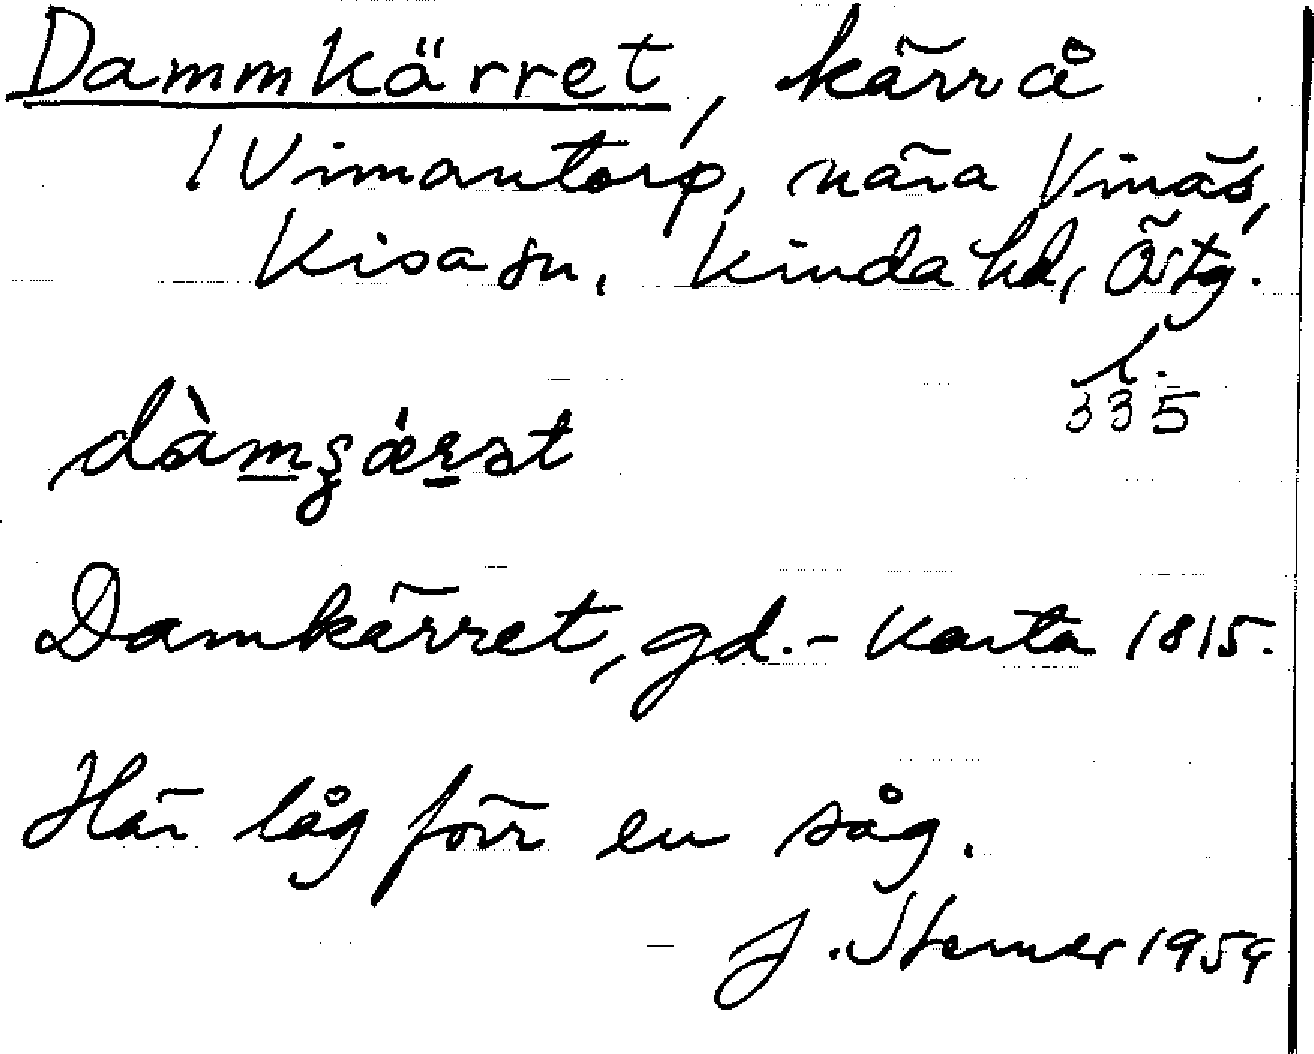 Dammkärret, kärr å
1 Vimantorp, nära Vinäs,
Kisa sn. Kinda hd, Östg.
l.
335
dàmʂǽrət
Damkärret, gd. - Karta 1815.
Här låg förr en såg.
J. Sterner 1959